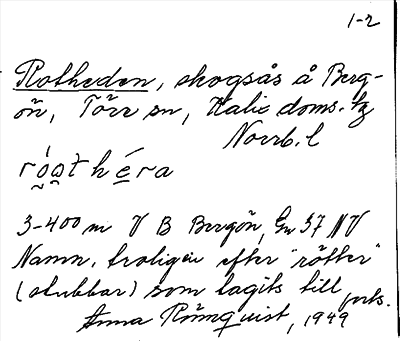 1-2
Rotheden, skogsås å Berg-
ön, Töre sn, Kalix doms. tg
Norrb. l
3-400 m V B Bergön, Gm 37 NV
Namn. troligen efter "rötter"
(stubbar) som tagits till
forts.
Anna Römquist, 1949